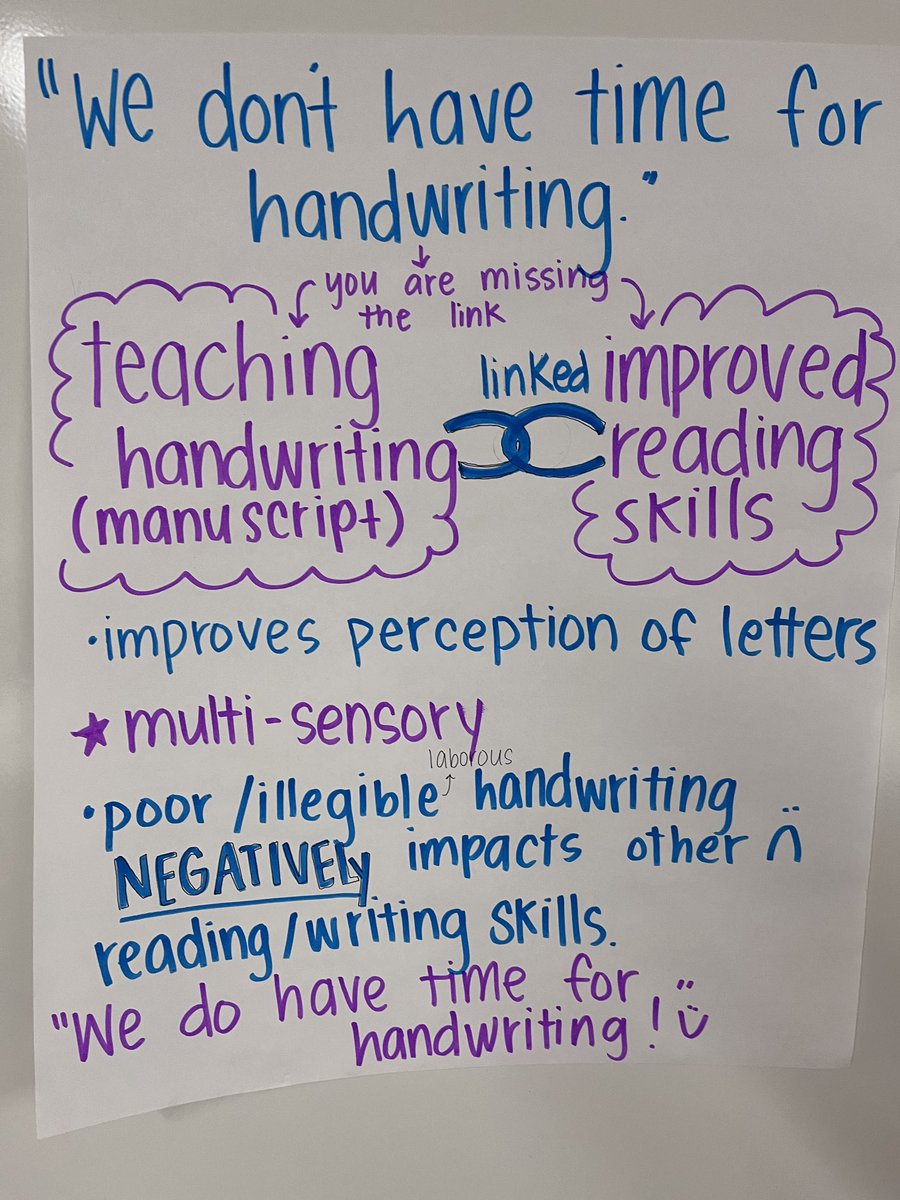 "We don't have time for
handwriting."
you are missing
the link
teaching
handwriting
(manuscript)
linked
improved
reading
skills
•improves perception of letters
★ multi-sensory
laborous
•poor/illegible handwriting
NEGATIVELY impacts other
reading/writing skills.
"We do have time for
handwriting!